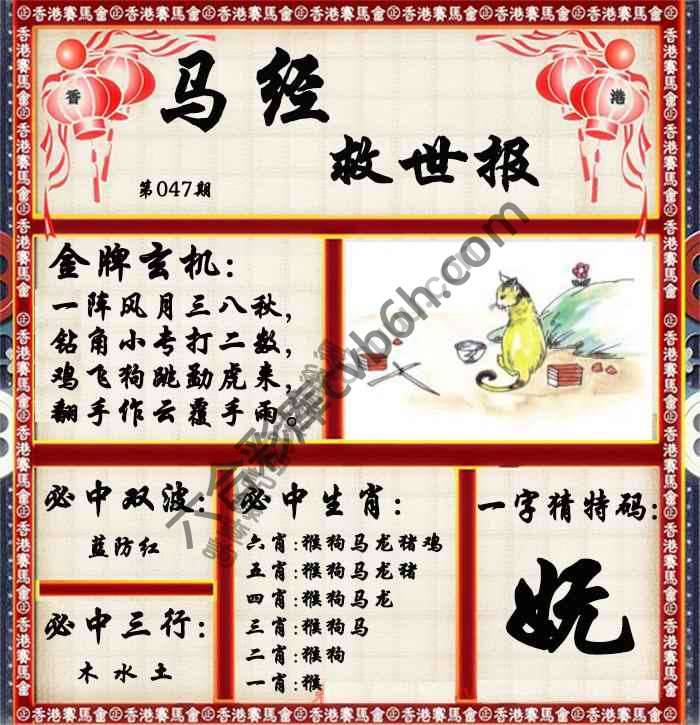 香港賽馬會
香 港
马经
救世报
第047期
金牌玄机:
一阵风月三八秋,
钻角小专打二数,
鸡飞狗跳勐虎来,
翻手作云覆手雨。
六合彩库cvb6h.com
必中双波:
蓝防红
必中三行:
木 水 土
必中生肖:
六肖:猴狗马龙猪鸡
五肖:猴狗马龙猪
四肖:猴狗马龙
三肖:猴狗马
二肖:猴狗
一肖:猴
一字猜特码:
妩